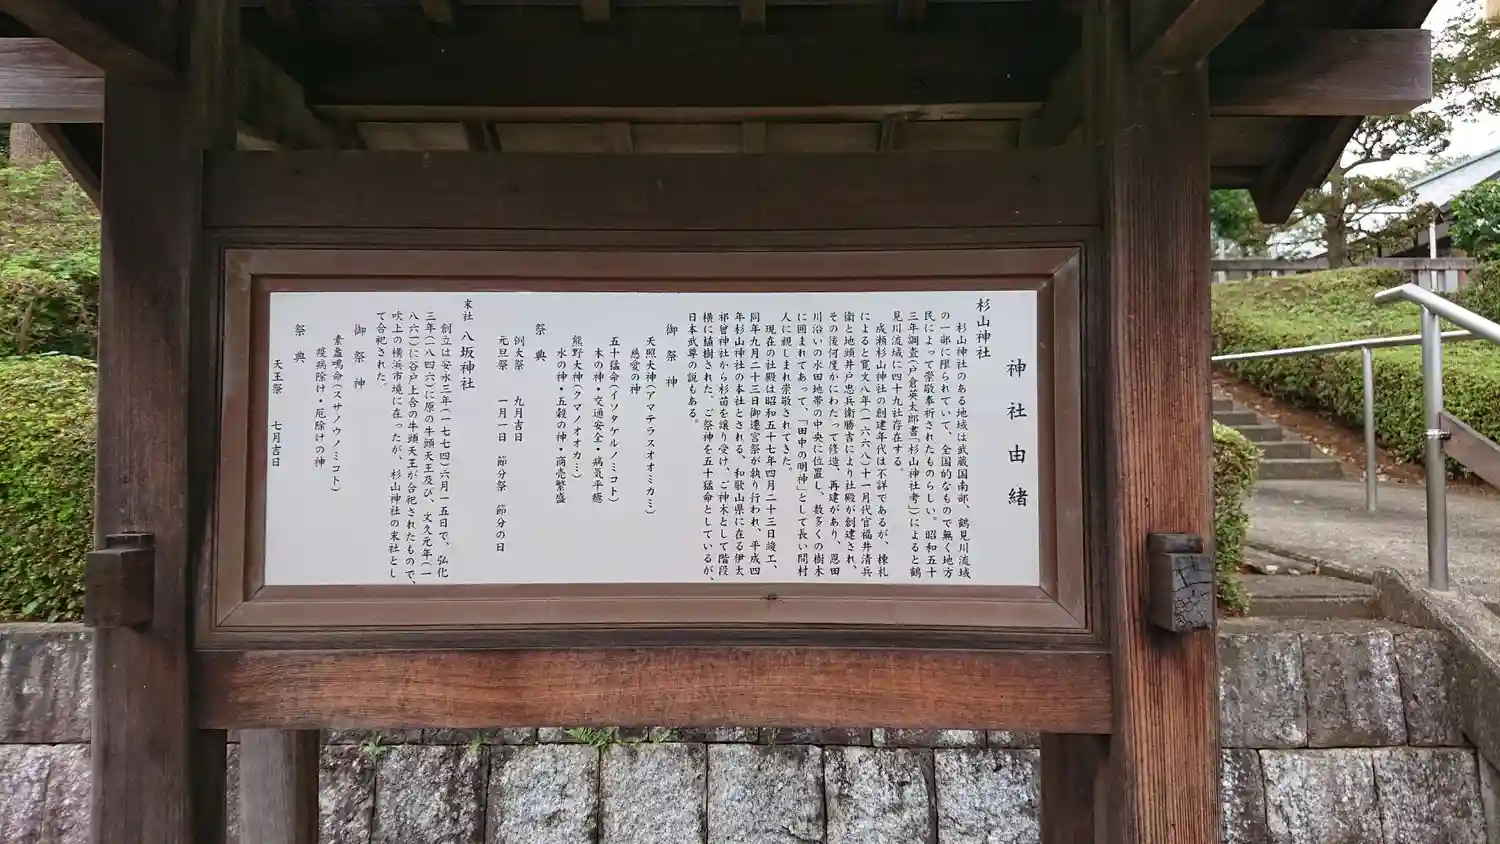 神社由緒
杉山神社
杉山神社のある地域は武蔵国南部、鶴見川流域
の一部に限られていて、全国的なもので無く地方
民によって崇敬奉祈されたものらしい。昭和五十
三年調査(戸倉英太郎書「杉山神社考」)によると鶴
見川流域に四十九社存在する。
成瀬杉山神社の創建年代は不詳であるが、棟札
によると寛文八年(一六六八)十一月代官福井清兵
衛と地頭井戸忠兵衛勝吉により社殿が創建され、
その後何度かにわたって修造、再建があり、恩田
川沿いの水田地帯の中央に位置し、数多くの樹木
に囲まれてあって、「田中の明神」として長い間村
人に親しまれ崇敬されてきた。
現在の社殿は昭和五十七年四月二十三日竣工、
同年九月二十三日御遷宮祭が執り行われ、平成四
年杉山神社の本社とされる、和歌山県に在る伊太
祁曾神社から杉苗を譲り受け、ご神木として階段
横に植樹された。ご祭神を五十猛命としているが、
日本武尊の説もある。
御祭神
天照大神(アマテラスオオミカミ)
慈愛の神
五十猛命(イソタケルノミコト)
木の神・交通安全・病気平癒
熊野大神(クマノオオカミ)
水の神・五穀の神・商売繁盛
祭典
例大祭 九月吉日
元旦祭 一月一日 節分祭 節分の日
末社 八坂神社
創立は安永三年(一七七四)六月一五日で、弘化
三年(一八四六)に原の牛頭天王及び、文久元年(一
八六一)に谷戸上合の牛頭天王が合祀されたもので、
吹上の横浜市境に在ったが、杉山神社の末社とし
て合祀された。
御祭神
素盞嗚命(スサノウノミコト)
疫病除け・厄除けの神
祭典
天王祭 七月吉日